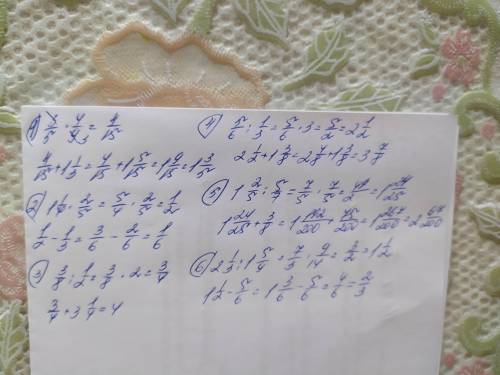 1) 3/5 · 4/9 = 4/15
4/15 + 1 1/3 = 4/15 + 1 5/15 = 1 9/15 = 1 3/5
2) 1 1/4 · 2/5 = 5/4 · 2/5 = 1/2
1/2 - 1/3 = 3/6 - 2/6 = 1/6
3) 3/8 : 1/2 = 3/8 · 2 = 3/4
3/4 + 3 1/4 = 4
4) 5/6 : 1/3 = 5/6 · 3 = 5/2 = 2 1/2
5) 1 2/5 : 5/7 = 7/5 · 7/5
1 24/25 + 3/8 = 1 192/200 + 75/200 = 1 267/200 = 2 67/200
6) 2 1/3 : 1 5/9 = 7/3 · 9/14 = 3/2 = 1 1/2
1 1/2 - 5/6 = 1 3/6 - 5/6 = 4/6 = 2/3